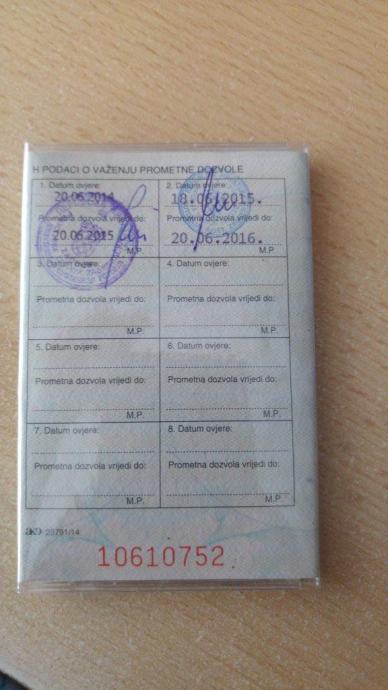 H PODACI O VAŽENJU PROMETNE DOZVOLE
1. Datum ovjere:
20.06.2014
Prometna dozvola vrijedi do:
20.06.2015
M.P.
2. Datum ovjere:
18.06.2015.
Prometna dozvola vrijedi do:
20.06.2016.
M.P.
3. Datum ovjere:
Prometna dozvola vrijedi do:
M.P.
4. Datum ovjere:
Prometna dozvola vrijedi do:
M.P.
5. Datum ovjere:
Prometna dozvola vrijedi do:
M.P.
6. Datum ovjere:
Prometna dozvola vrijedi do:
M.P.
7. Datum ovjere:
Prometna dozvola vrijedi do:
M.P.
8. Datum ovjere:
Prometna dozvola vrijedi do:
M.P.
23791/14
10610752